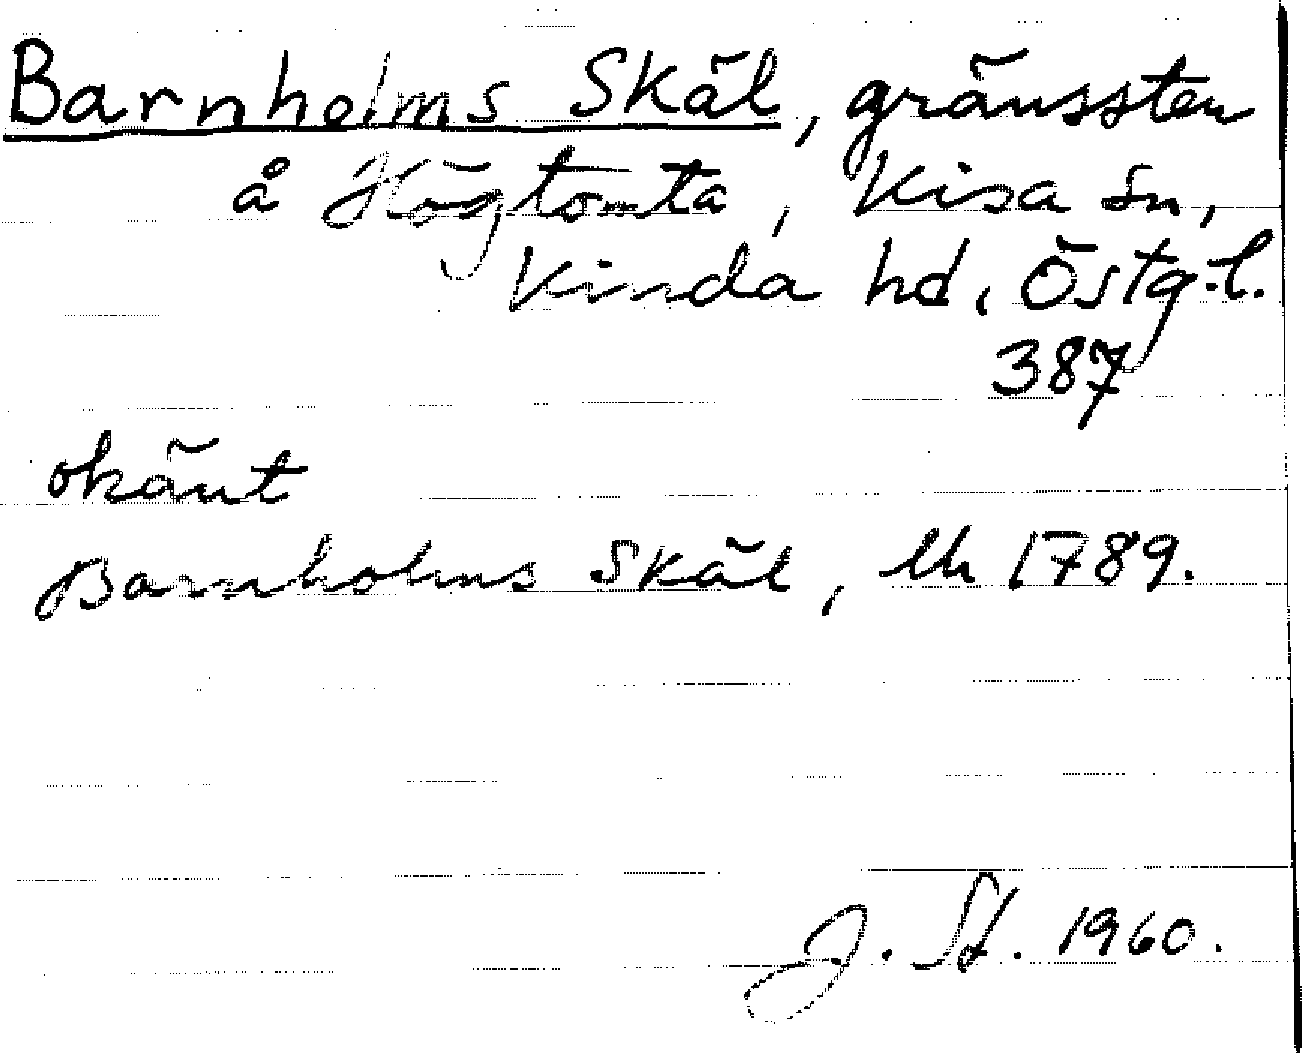 Barnholms Skäl, gränssten
å Högtomta, Kisa sn,
Kinda hd, Östg.l.
387
okänt
Barnholms Skäl, lm 1789.
J. St. 1960.